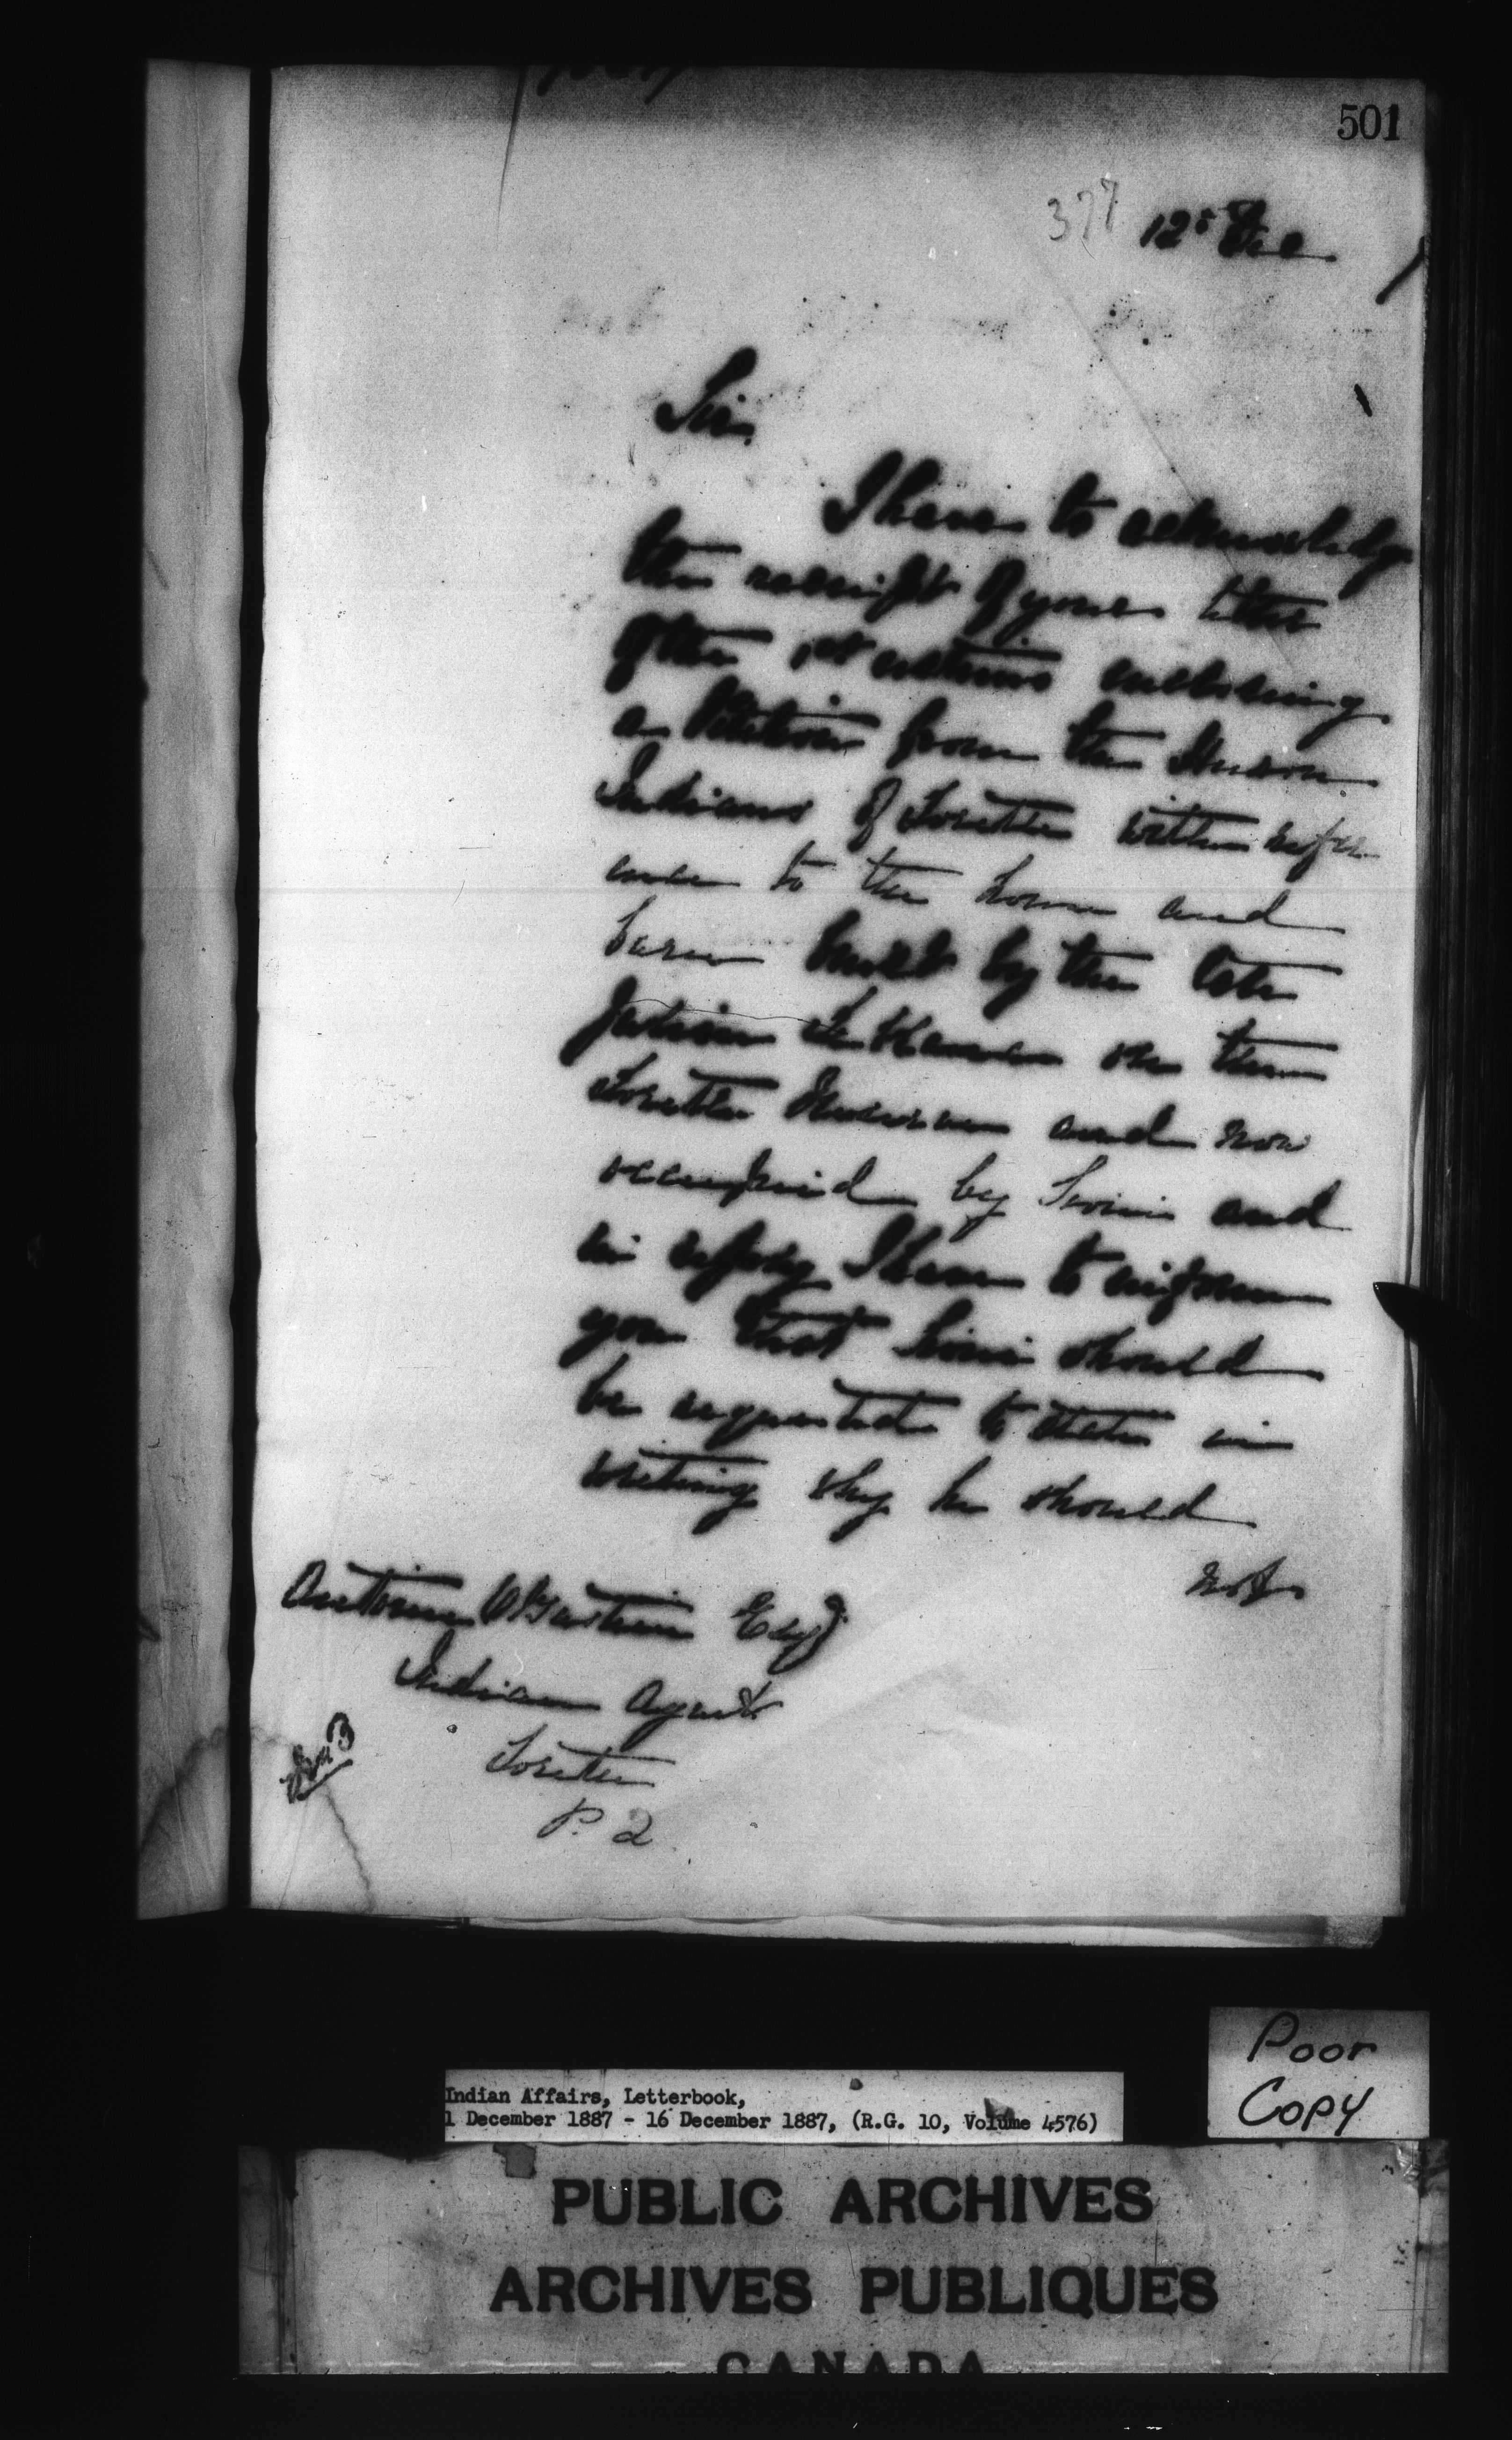 501
377 12th Dec
Sir,
I have to acknowledge
the receipt of your letter
of the 1st enclosing
a Petition from the Huron
Indians of Lorette with refer
ence to the house and
barn built by the late
on the
Lorette Reserve and now
occupied by Sioui and
in reply I have to inform
you that Sioui should
be requested to state in
writing why he should
not
Antoine O. Bastien Esq
Indian Agent
Lorette
P. Q
Poor
Copy
Indian Affairs, Letterbook,
1 December 1887 - 16 December 1887, (R.G. 10, Volume 4576)
PUBLIC ARCHIVES
ARCHIVES PUBLIQUES
CANADA